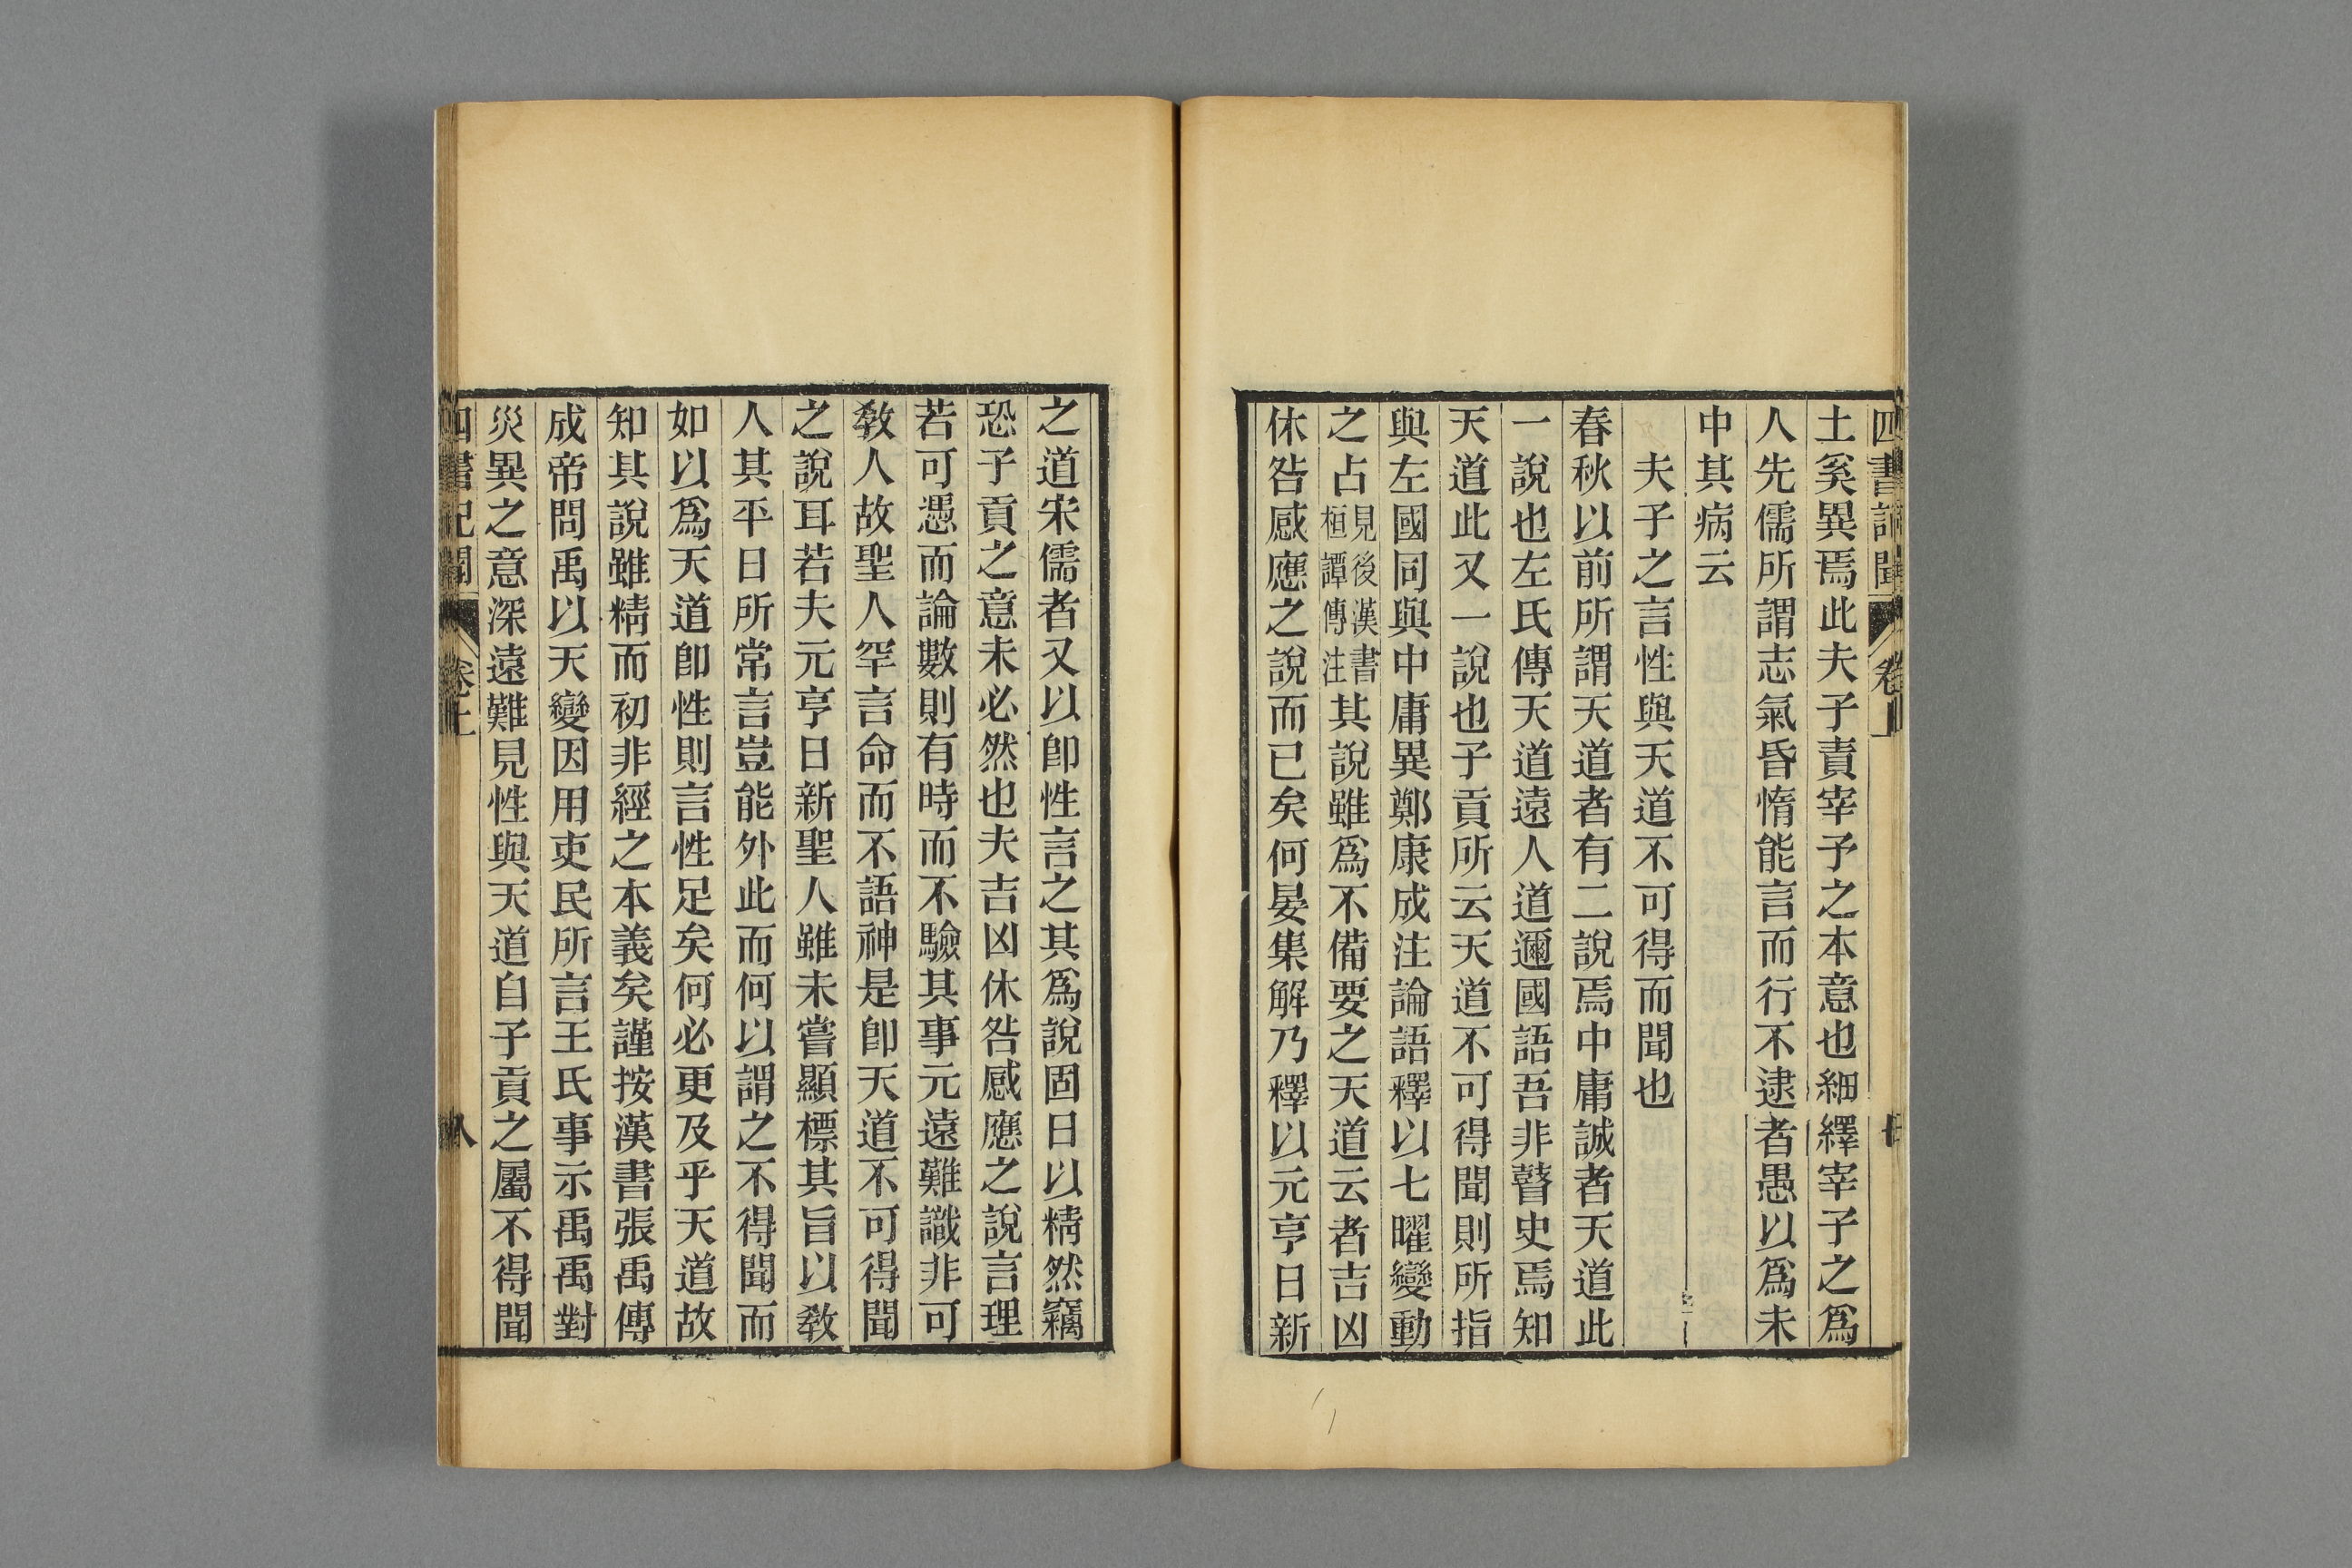 土奚異焉此夫子責宰予之本意也細繹宰予之爲
人先儒所謂志氣昏惰能言而行不逮者愚以爲未
中其病云
夫子之言性與天道不可得而聞也
春秋以前所謂天道者有二說焉中庸誠者天道此
一說也左氏傳天道遠人道邇國語吾非瞽史焉知
天道此又一說也子貢所云天道不可得聞則所指
與左國同與中庸異鄭康成注論語釋以七曜變動
之占見後漢書桓譚傳注其說雖爲不備要之天道云者吉凶
休咎感應之說而已矣何晏集解乃釋以元亨日新
之道宋儒者又以卽性言之其爲說固日以精然竊
恐子貢之意未必然也夫吉凶休咎感應之說言理
若可憑而論數則有時而不驗其事元遠難識非可
敎人故聖人罕言命而不語神是卽天道不可得聞
之說耳若夫元亨日新聖人雖未嘗顯標其旨以敎
人其平日所常言豈能外此而何以謂之不得聞而
如以爲天道卽性則言性足矣何必更及乎天道故
知其說雖精而初非經之本義矣謹按漢書張禹傳
成帝問禹以天變因用吏民所言王氏事示禹禹對
災異之意深遠難見性與天道自子貢之屬不得聞
四書記聞 卷上 八